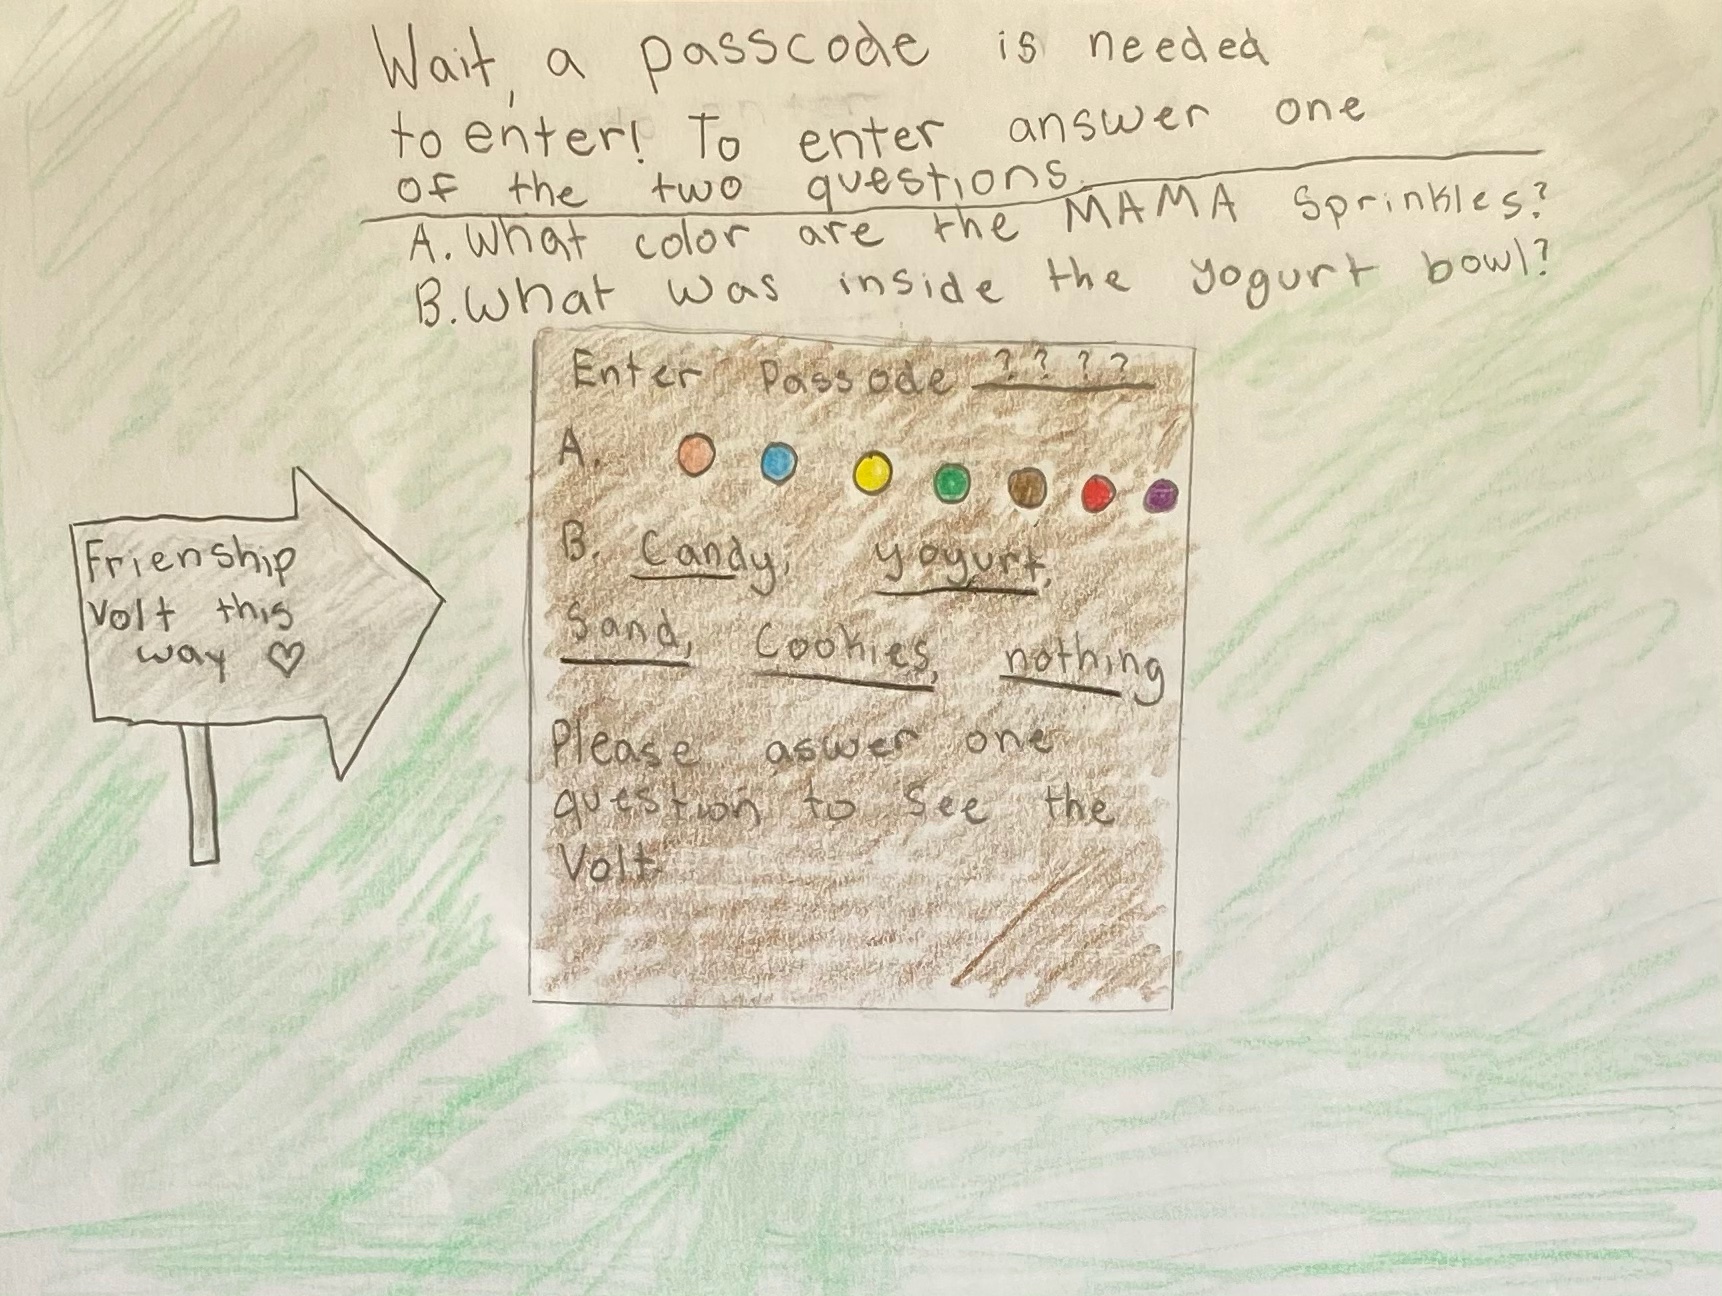 Wait, a passcode is needed
to enter! To enter answer one
of the two questions.
A. What color are the MAMA Sprinkles?
B. What was inside the yogurt bowl?
Enter Passode ? ? ? ?
A.
B. Candy, yogurt,
Sand, Cookies, nothing
Please aswer one
question to see the
Volt
Frienship
Volt this
way ♡